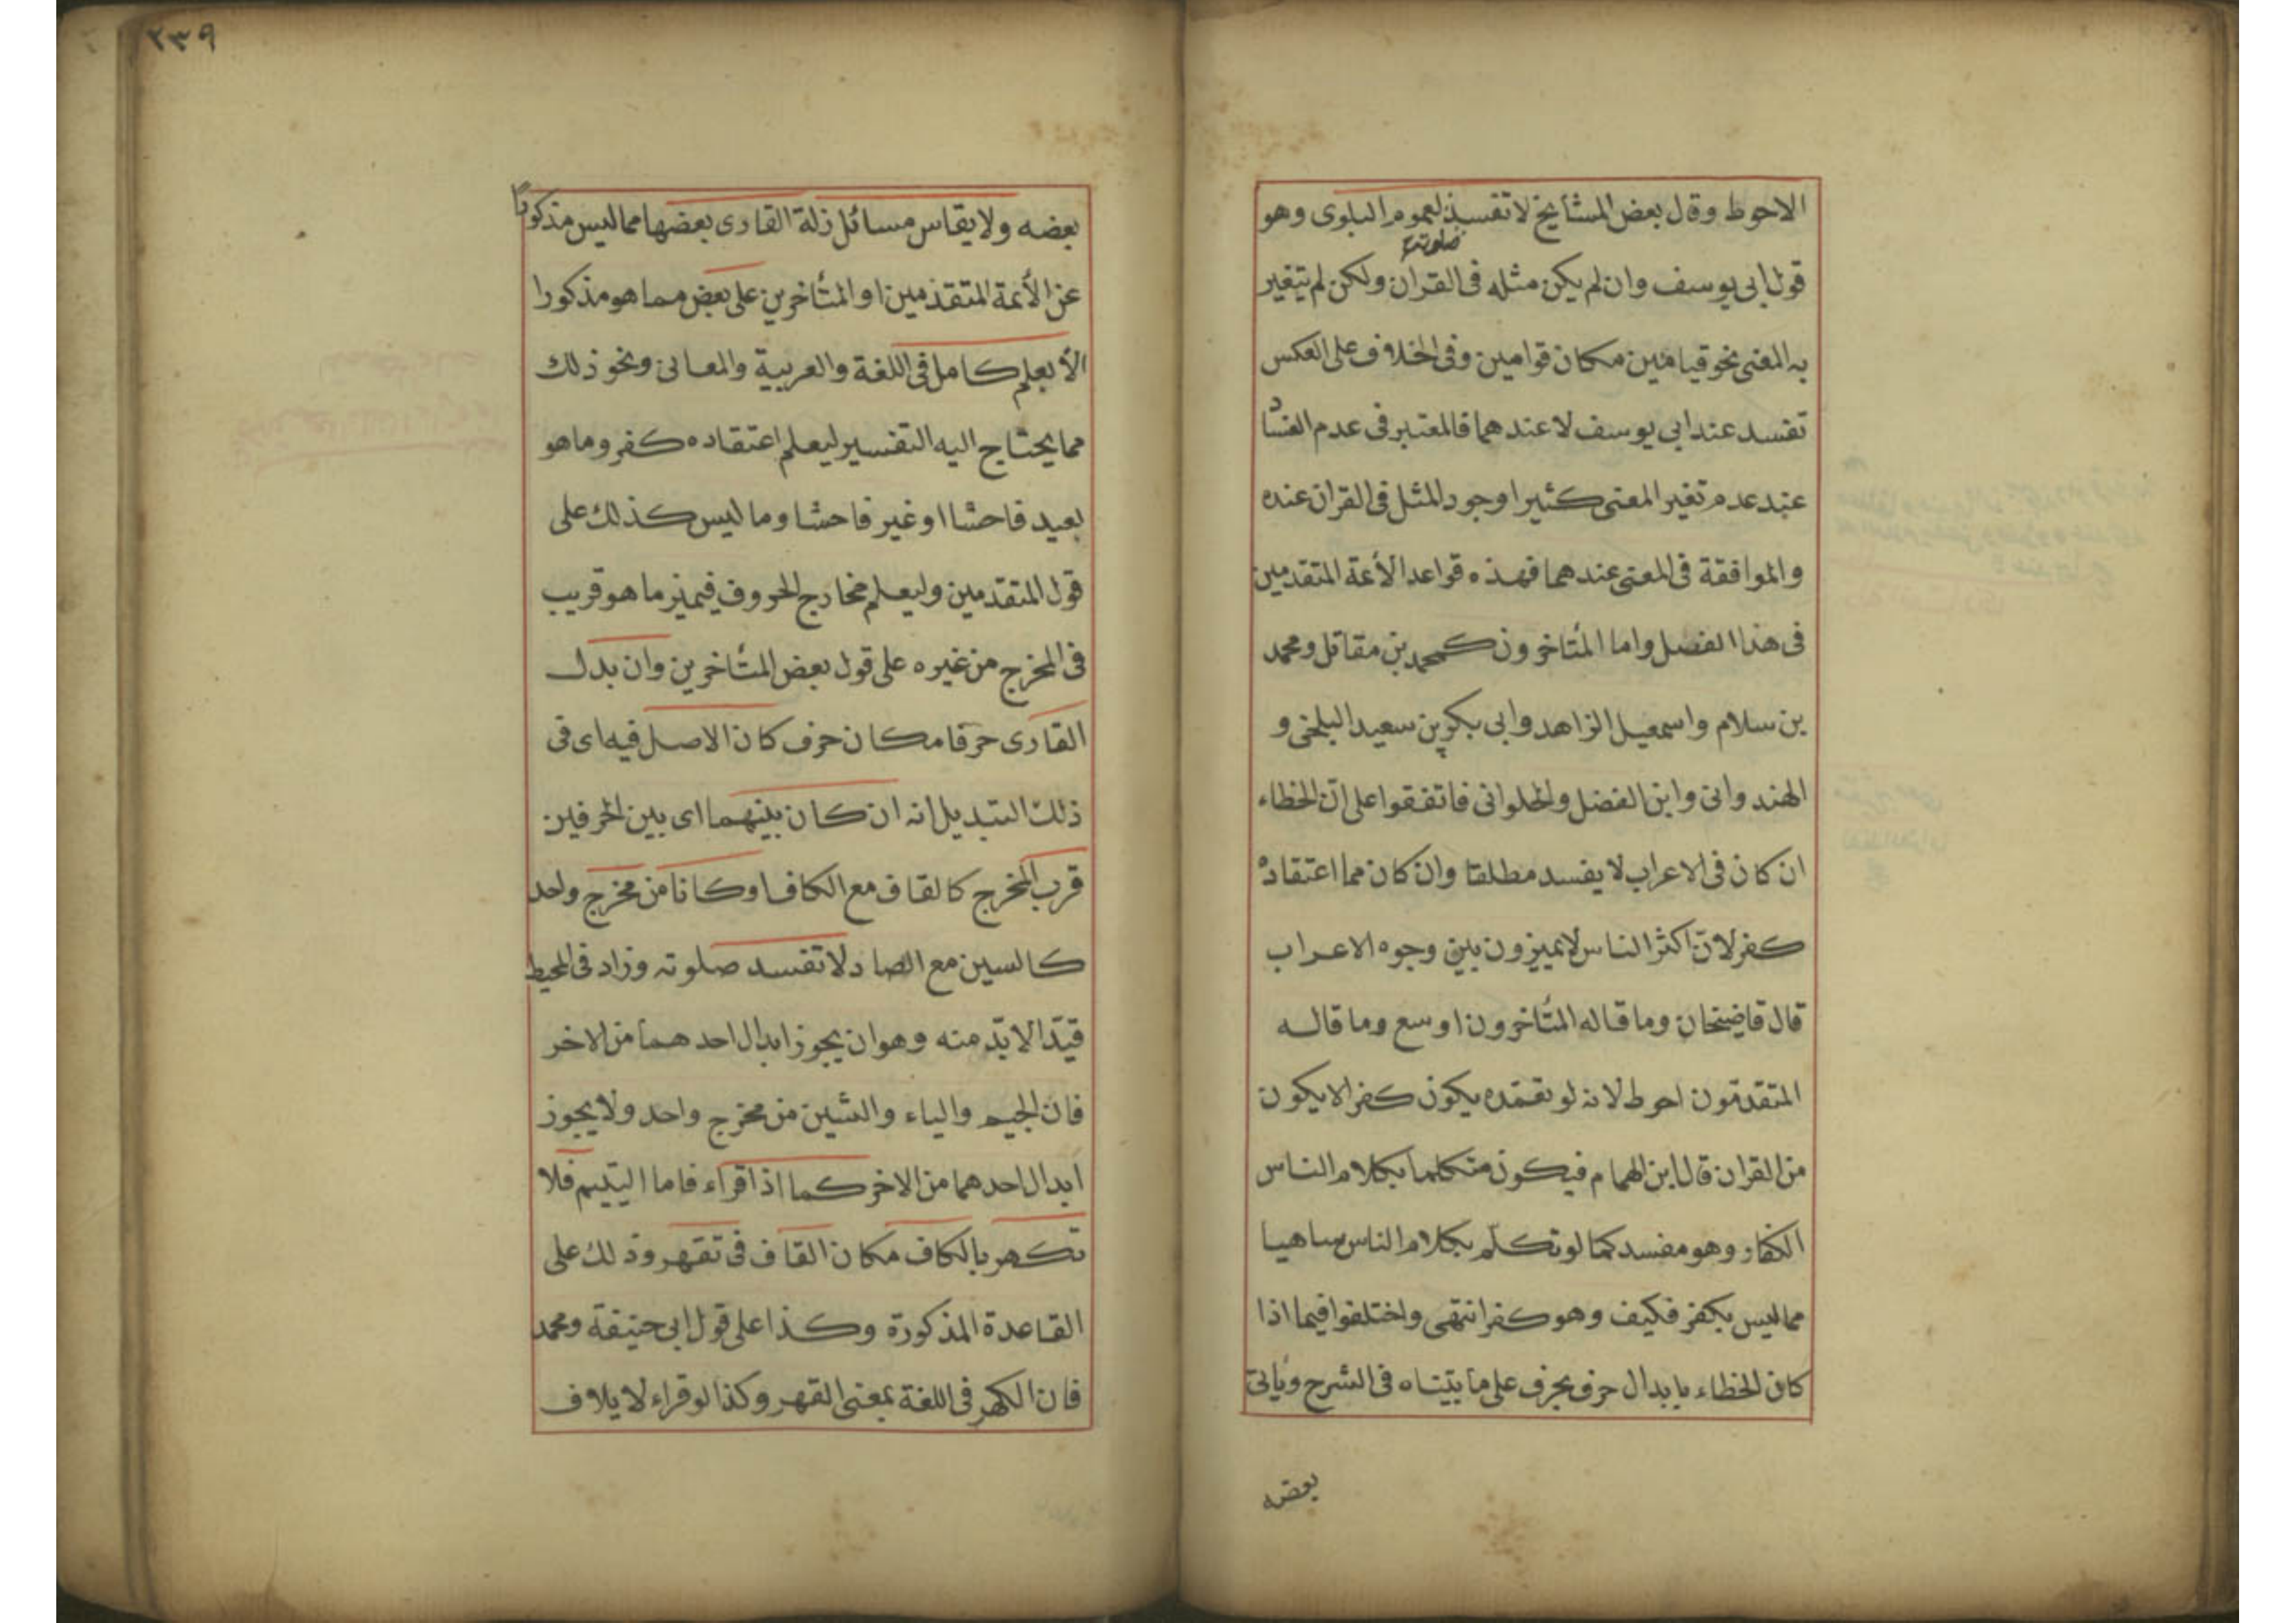 الاحوط وقال بعض المشأيخ لا تفسد لعموم البلوى وهو
صلوته
قول ابى يوسف وان لم يكن مثله فى القران ولكن لم يتغير
به المعنى نحو قيامين مكان قوامين وفى الخلاف على العكس
تفسد عند ابى يوسف لا عندهما فالمعتبر فى عدم الفساد
عند عدم تغير المعنى كثيرا وجود المثل فى القران عنده
والموافقة فى المعنى عندهما فهذه قواعد الأئمة المتقدمين
فى هذا الفصل واما المتأخرون كمحمد بن مقاتل ومحمد
بن سلام واسمعيل الزاهد وابى بكر بن سعيد البلخى و
الهندوانى وابن الفضل والحلوانى فاتفقوا على انّ الخطاء
ان كان فى الاعراب لا يفسد مطلقا وان كان مما اعتقاده
كفر لانّ اكثر الناس لا يميزون بين وجوه الاعراب
قال قاضيخان وما قاله المتأخرون اوسع وما قاله
المتقدمون احوط لانه لو تعمّده يكون كفرا لا يكون
من القران قال ابن الهمام فيكون متكلما بكلام الناس
الكفار وهو مفسد كما لو تكلّم بكلام الناس ساهيا
مما ليس بكفر فكيف وهو كفر انتهى واختلفوا فيما اذا
كان الخطاء بابدال حرف بحرف على ما بيّناه فى الشرح ويأتى
بعضه
٢٣٩
بعضه ولا يقاس مسائل زلة القارى بعضها مما ليس مذكورا
عن الأئمة المتقدمين او المتأخرين على بعض مما هو مذكورا
الا بعلم كامل فى اللغة والعربية والمعانى ونحو ذلك
مما يحتاج اليه التفسير ليعلم اعتقاده كفر وما هو
بعيد فاحشا او غير فاحشا وما ليس كذلك على
قول المتقدمين وليعلم مخارج الحروف فيميز ما هو قريب
فى المخرج من غيره على قول بعض المتأخرين وان بدل
القارى حرفا مكان حرف كان الاصل فيه اى فى
ذلك التبديل انه ان كان بينهما اى بين الحرفين
قرب المخرج كالقاف مع الكاف او كانا من مخرج واحد
كالسين مع الصاد لا تفسد صلوته وزاد فى المحيط
قيدا لا بدّ منه وهو ان يجوز ابدال احدهما من الاخر
فان الجيم والياء والشين من مخرج واحد ولا يجوز
ابدال احدهما من الاخر كما اذا قراء فاما اليتيم فلا
تكهر بالكاف مكان القاف فى تقهر وذلك على
القاعدة المذكورة وكذا على قول ابى حنيفة ومحمد
فان الكهر فى اللغة بمعنى القهر وكذا لو قراء لايلاف